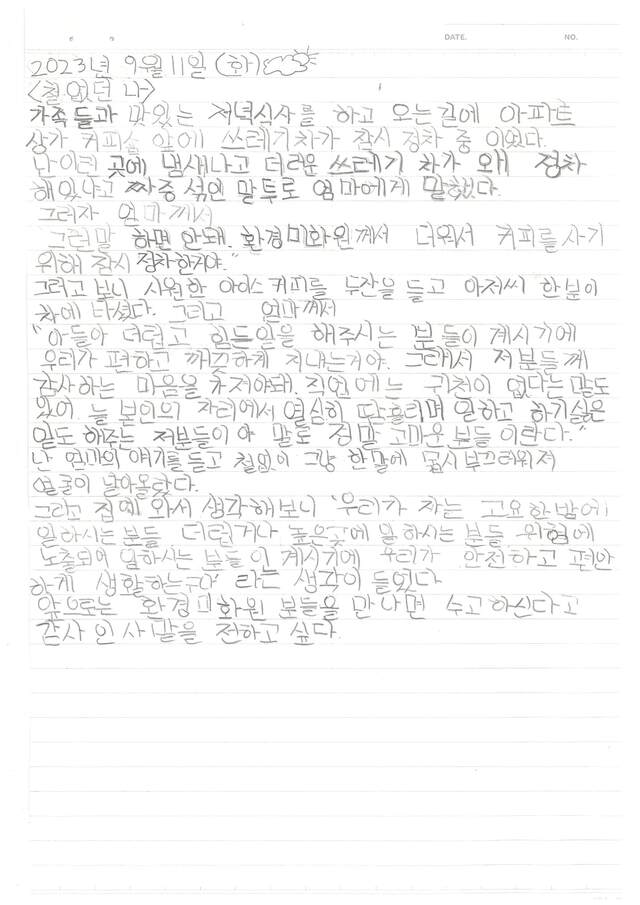 DATE. NO.
2023년 9월 11일 (화)
<철없던 나>
가족들과 맛있는 저녁식사를 하고 오는길에 아파트
상가 커피숍 앞에 쓰레기차가 잠시 정차 중 이였다.
난 이런 곳에 냄새나고 더러운 쓰레기 차가 왜 정차
해있냐고 짜증 섞인 말투로 엄마에게 말했다.
그러자 엄마께서
"그런말 하면 안돼. 환경미화원께서 더워서 커피를 사기
위해 잠시 정차한거야."
그러고 보니 시원한 아이스 커피를 두잔을 들고 아저씨 한분이
차에 타셨다. 그리고 엄마께서
"아들아 더럽고 힘든일을 해주시는 분들이 계시기에
우리가 편하고 깨끗하게 지내는거야. 그래서 저분들께
감사하는 마음을 가져야돼. 직업에는 귀천이 없다는말도
있어. 늘 본인의 자리에서 열심히 땀흘리며 일하고 하기싫은
일도 해주는 저분들이야 말로 정말 고마운분들 이란다."
난 엄마의 얘기를 듣고 철없이 그냥 한말에 몹시 부끄러워져
얼굴이 달아올랐다.
그리고 집에 와서 생각해보니 '우리가 자는 고요한밤에
일하시는분들 더럽거나 높은곳에 일 하시는 분들 위험에
노출되어 일하시는 분들 이 계시기에 우리가 안전하고 편안
하게 생활하는구나' 라는 생각이 들었다
앞으로는 환경미화원 분들을 만나면 수고 하신다고
감사 인사 말을 전하고 싶다.